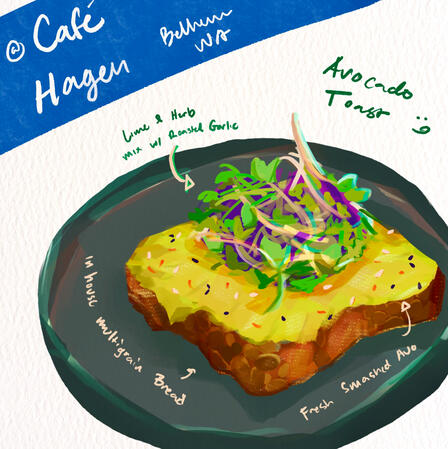 @ Café
Hagen
Bellevue
WA
Avocado
Toast :)
Lime & Herb
mix w/ Roasted Garlic
in house multigrain Bread
Fresh Smashed Avo